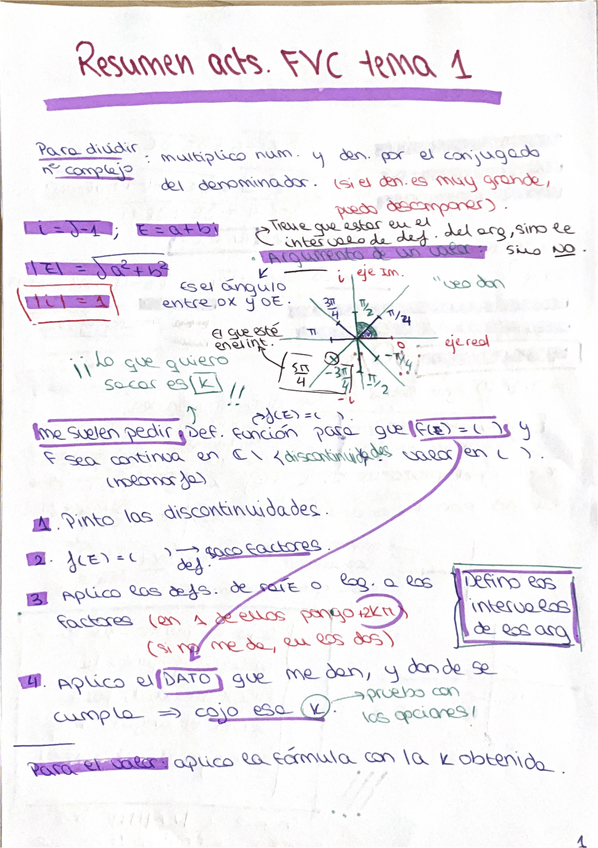 Resumen acts. FVC tema 1
Para dividir nº complejo : multiplico num. y den. por el conjugado
del denominador. (si el den. es muy grande,
puedo descomponer).
i = √-1 ; z = a+bi
→ Tiene que estar en el intervalo de def. del arg, sino le
sino NO.
Argumento de un valor:
|z| = √a²+b²
|i| = 1
Es el ángulo
entre OX y OZ.
i eje Im.
3π/4
π/2
π/4
π
0
eje real
-π/4
-3π/4
π/2
-i
5π/4
El que esté
en el int.
¡¡Lo que quiero
sacar es K !!
→ f(z)=( ).
me suelen pedir: Def. función para que f(z) = ( ) y
f sea continua en ℂ \ {discontinuidades valor en ( ).
(holomorfa)
1. Pinto las discontinuidades.
2. f(z) = ( ) → def. saco factores.
3. Aplico las defs. de raíz o log. a los
factores (en 1 de ellos pongo +2kπ)
(si no me da, en los dos)
Defino los
intervalos
de los arg
4. Aplico el DATO que me den, y donde se
cumpla ⇒ cojo esa K. → pruebo con
las opciones!
Para el valor: aplico la fórmula con la K obtenida.
1